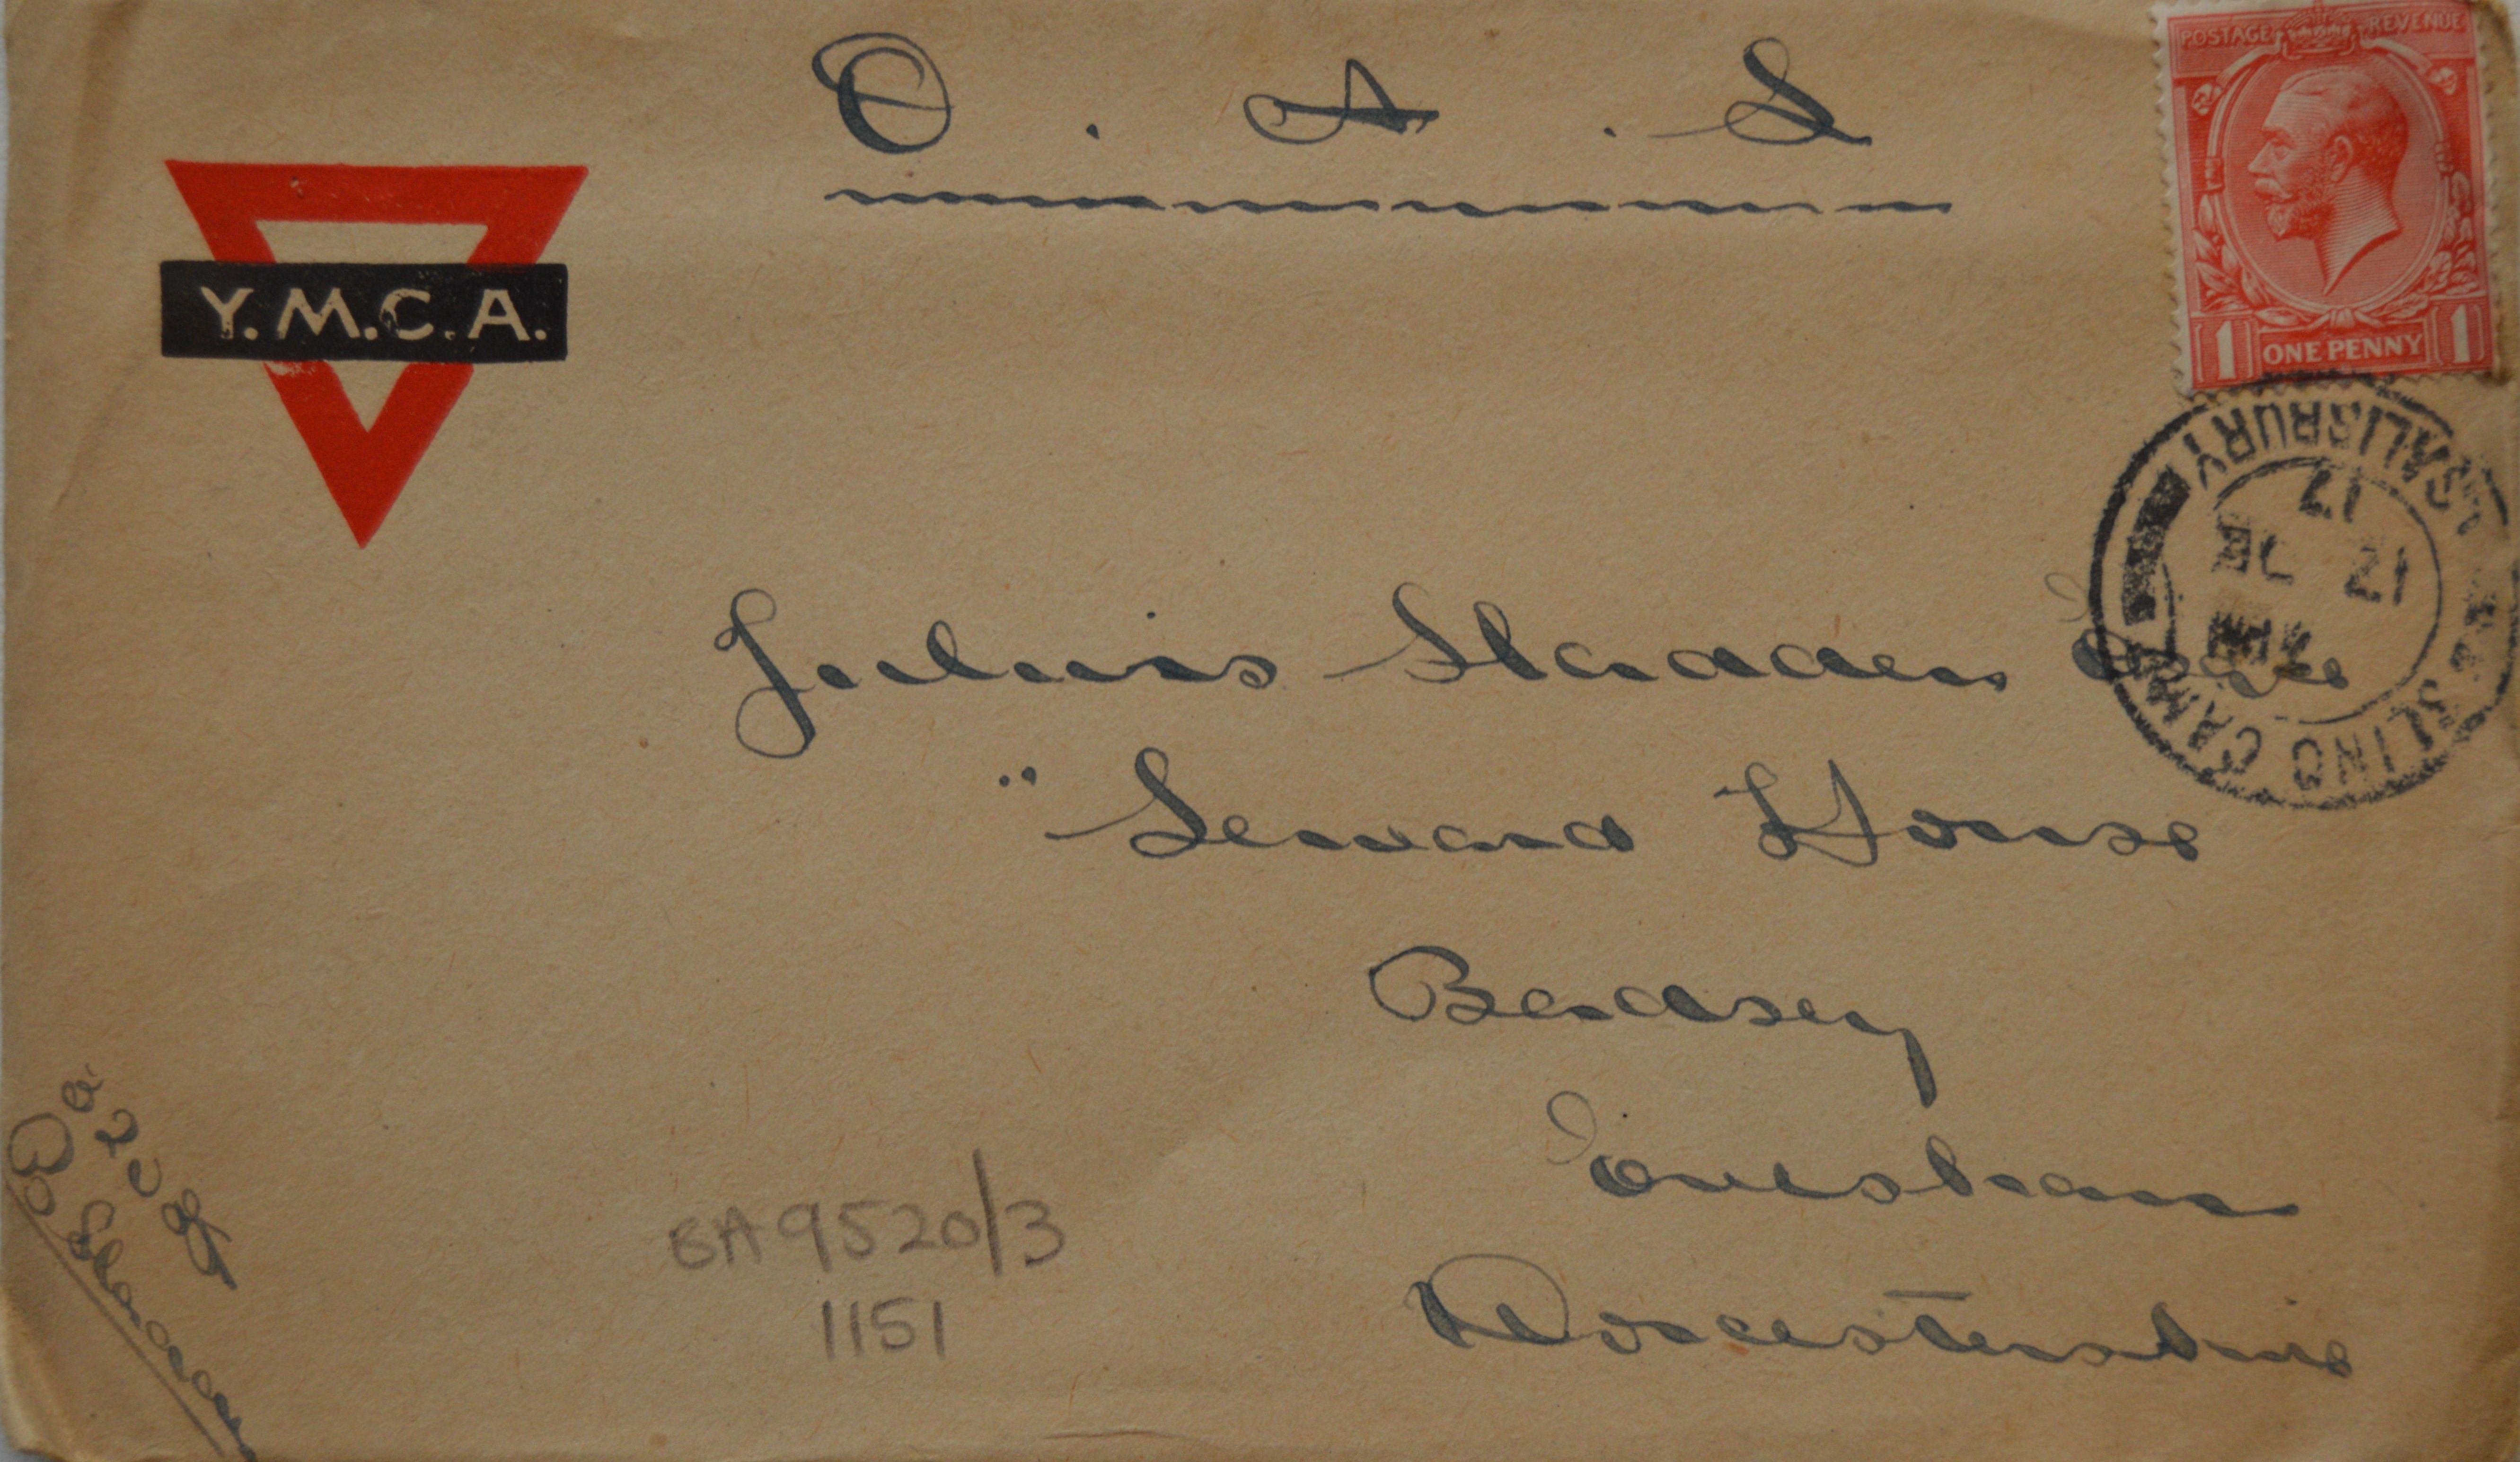 O. A. S
Y.M.C.A.
POSTAGE REVENUE
1 ONE PENNY 1
SLING CAMP SALISBURY
12 JE
17
Julius Sladden Esqre
"Seward House
Badsey
Evesham
Worcestershire
BA9520/3
1151
Sladden